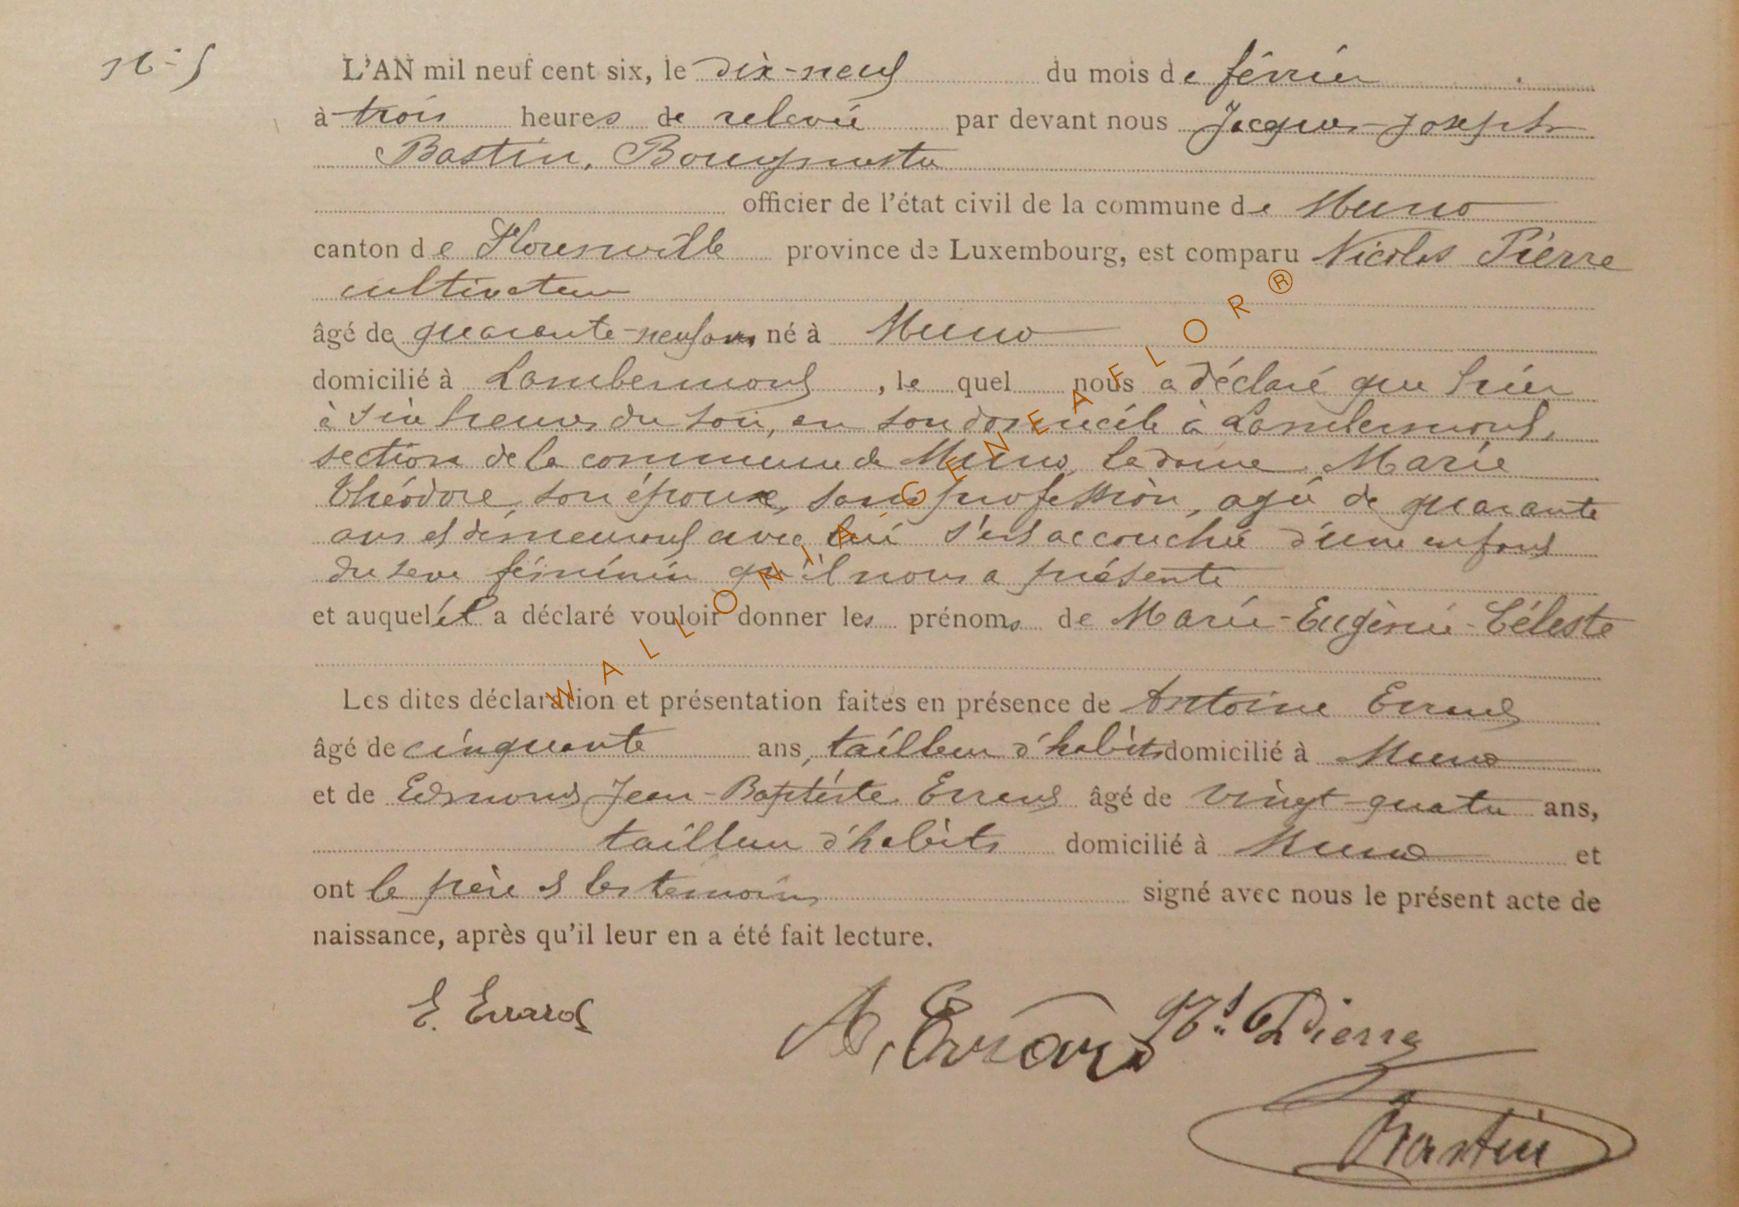 N° 5
L'AN mil neuf cent six, le dix-neuf du mois de février
à trois heures de relevée par devant nous Jacques-Joseph
Bastin, Bourgmestre
officier de l'état civil de la commune de Muno
canton de Florenville province de Luxembourg, est comparu Nicolas Pierre
cultivateur
âgé de quarante-neuf ans, né à Muno
domicilié à Lambermont, le quel nous a déclaré que hier
à six heures du soir, en son domicile à Lambermont,
section de la commune de Muno, la dame Marie
Théodore, son épouse, sans profession, agée de quarante
ans et demeurant avec lui s'est accouchée d'une enfant
du sexe féminin qu'il nous a présenté
et auquel il a déclaré vouloir donner les prénoms de Marie-Eugénie-Céleste
Les dites déclaration et présentation faites en présence de Antoine Errard
âgé de cinquante ans, tailleur d'habits domicilié à Muno
et de Edmond Jean-Baptiste Errard âgé de vingt-quatre ans,
tailleur d'habits domicilié à Muno et
ont le père et les témoins signé avec nous le présent acte de
naissance, après qu'il leur en a été fait lecture.
E. Errard
A. Errard
Pierre
Bastin
WALLONIA-GENEAFLOR®